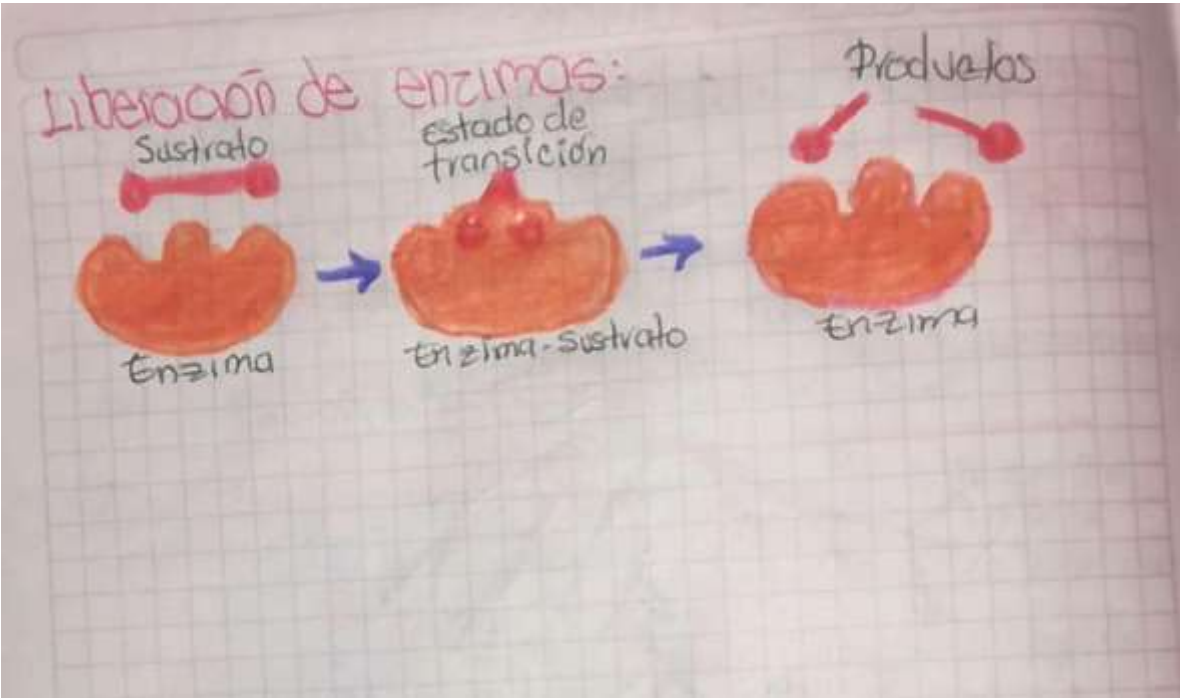 Liberación de enzimas:
Sustrato
Estado de
transición
Productos
Enzima
Enzima-Sustrato
Enzima